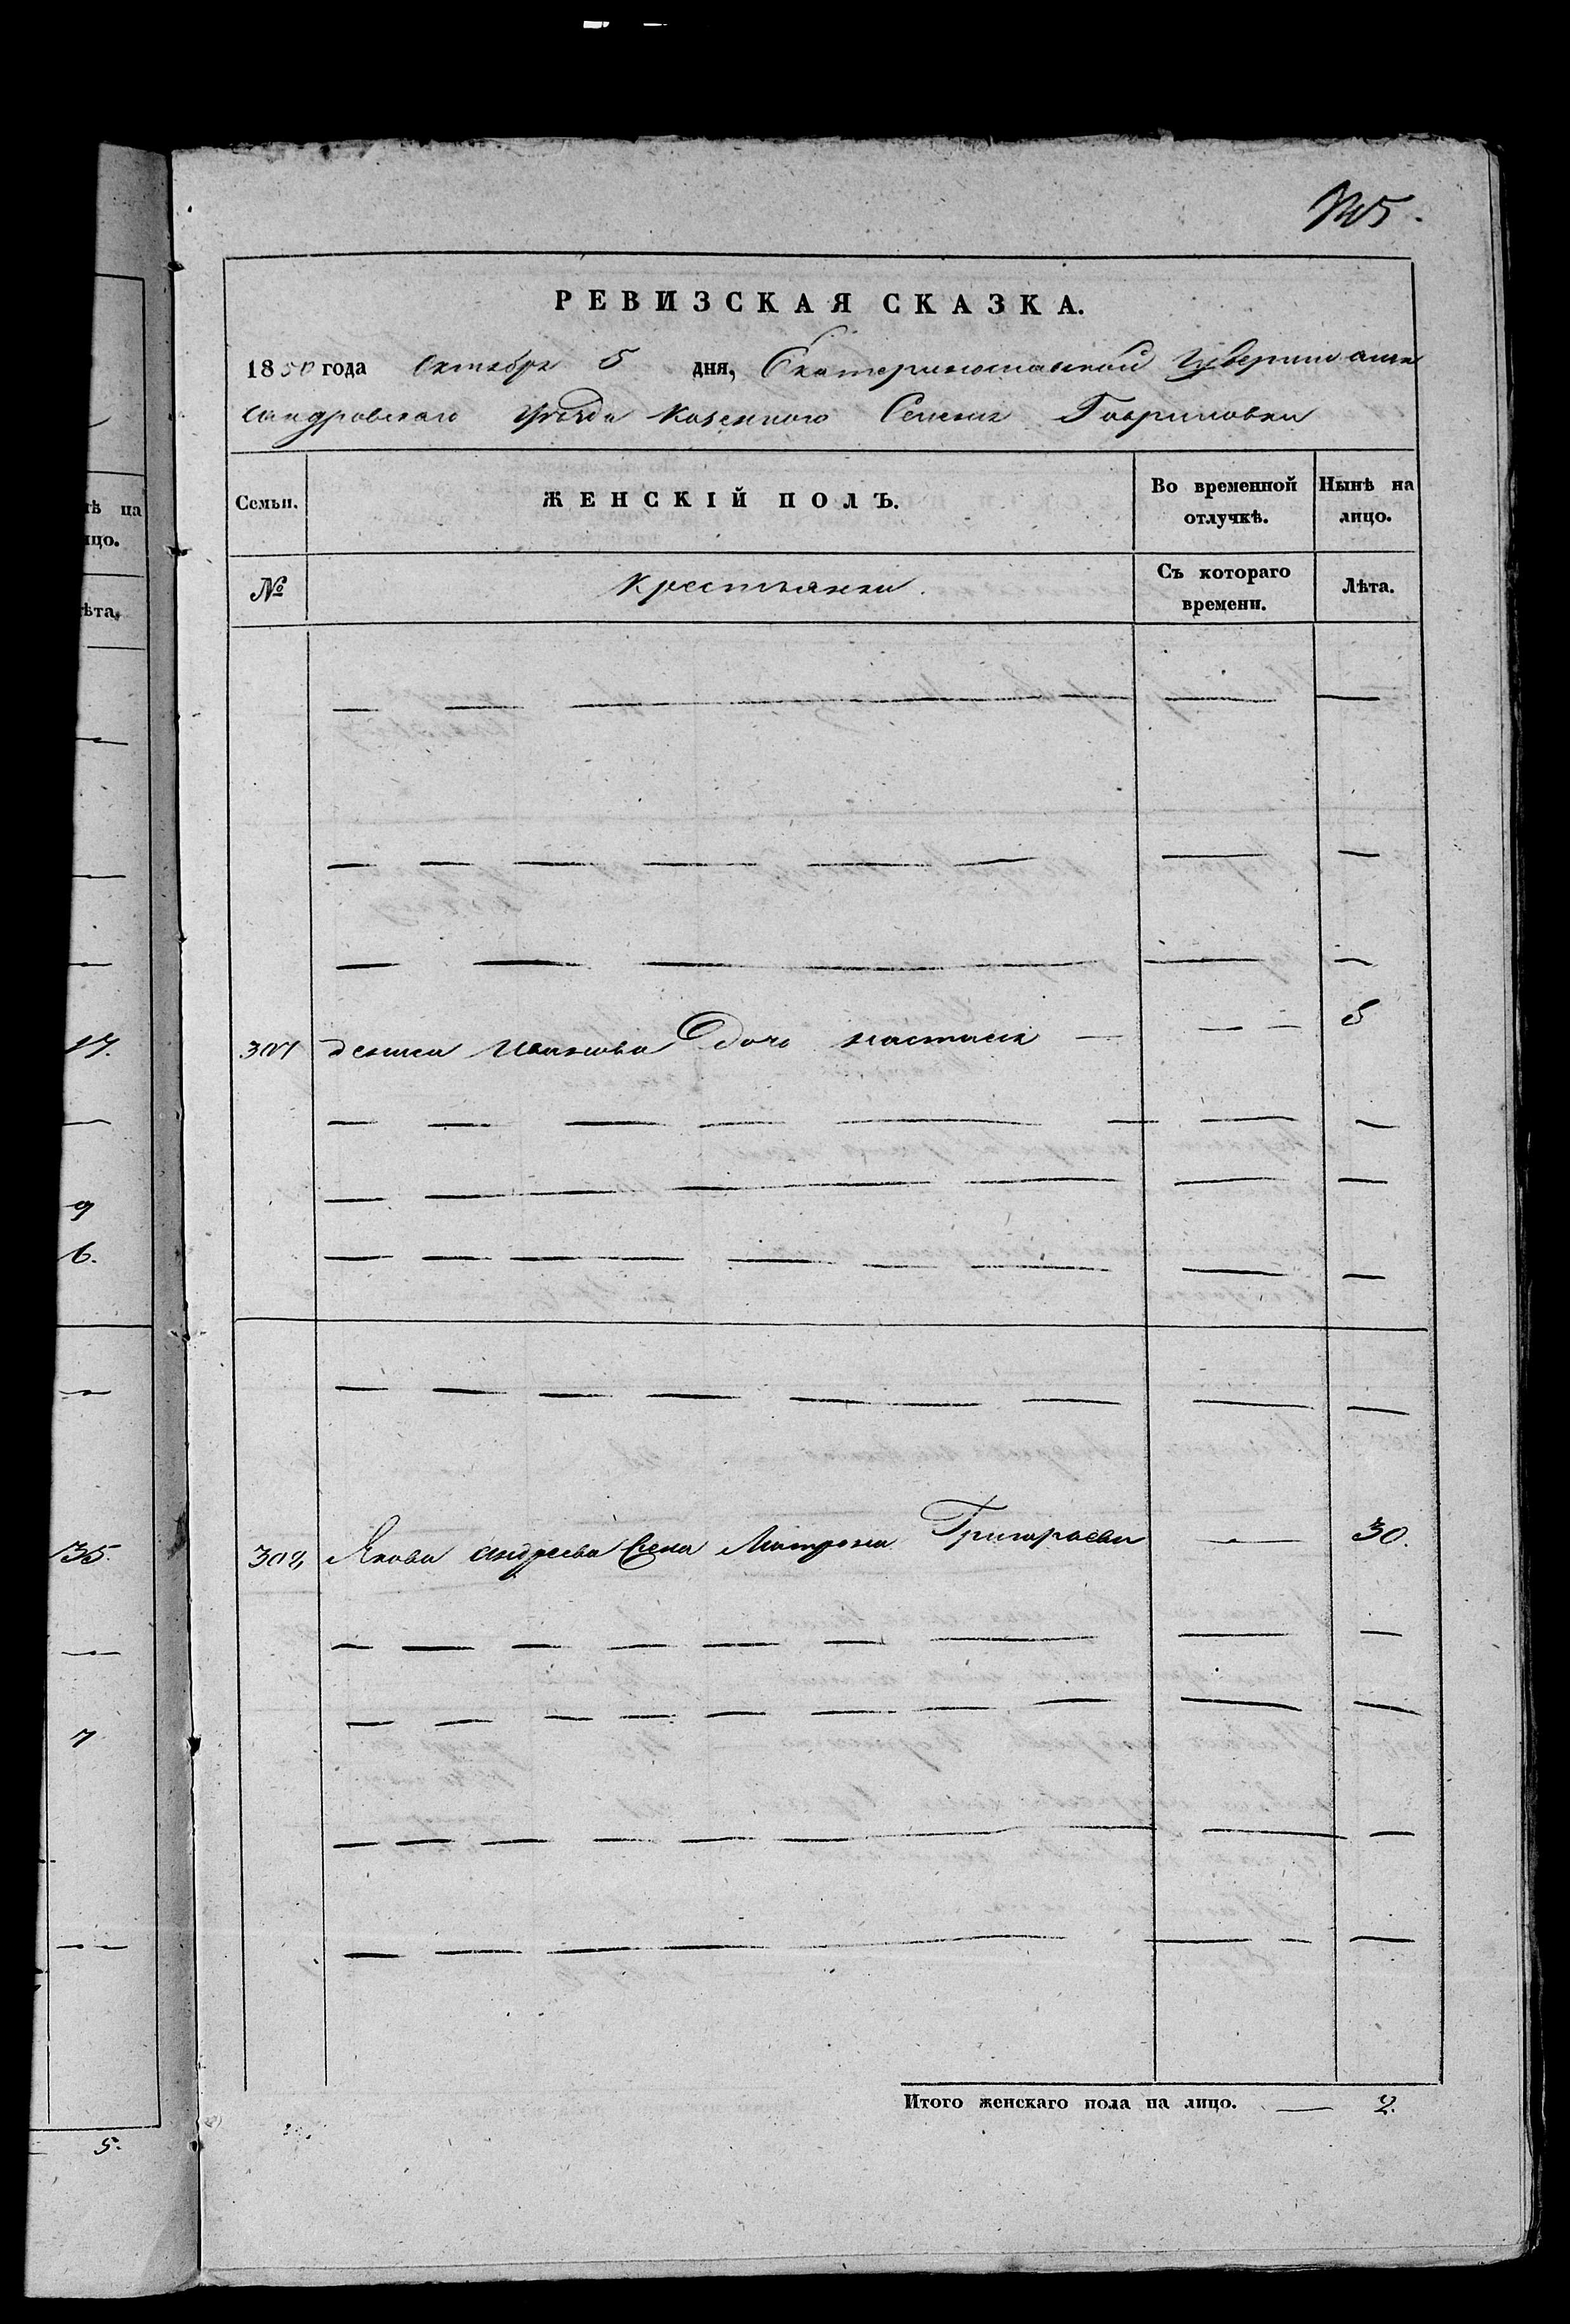 РЕВИЗСКАЯ СКАЗКА.
1850 года Октября 5 дня, Екатеринославской Губернии алек
сандровскаго Уѣзда Казеннаго Селения Гавриловки
Семьи. ЖЕНСКІЙ ПОЛЪ. Во временной отлучкѣ. Нынѣ на лицо.
№ Крестьянки. Съ котораго времени. Лѣта.
301 Ивanова Дочь настасия 5
302 Якова андреева Жена Матрона Григорьева 30.
Итого женскаго пола на лицо. 2.
нѣ на
лицо.
Лѣта.
17.
9
6.
35.
7
5.